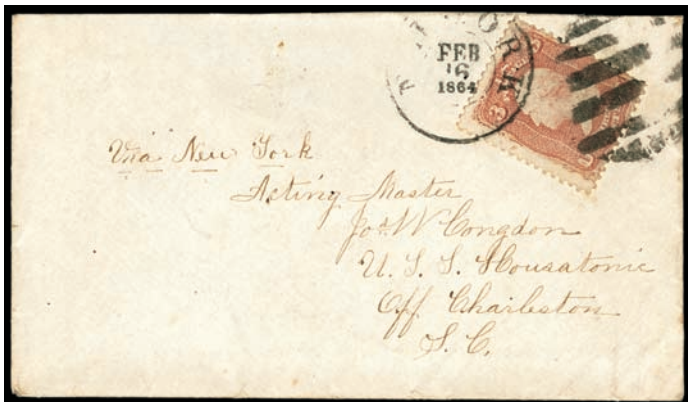 YORK
FEB
16
1864
3 3
Via New York
Acting Master
Jos. W Congdon
U. S. S. Housatonic
Off Charleston
S. C.